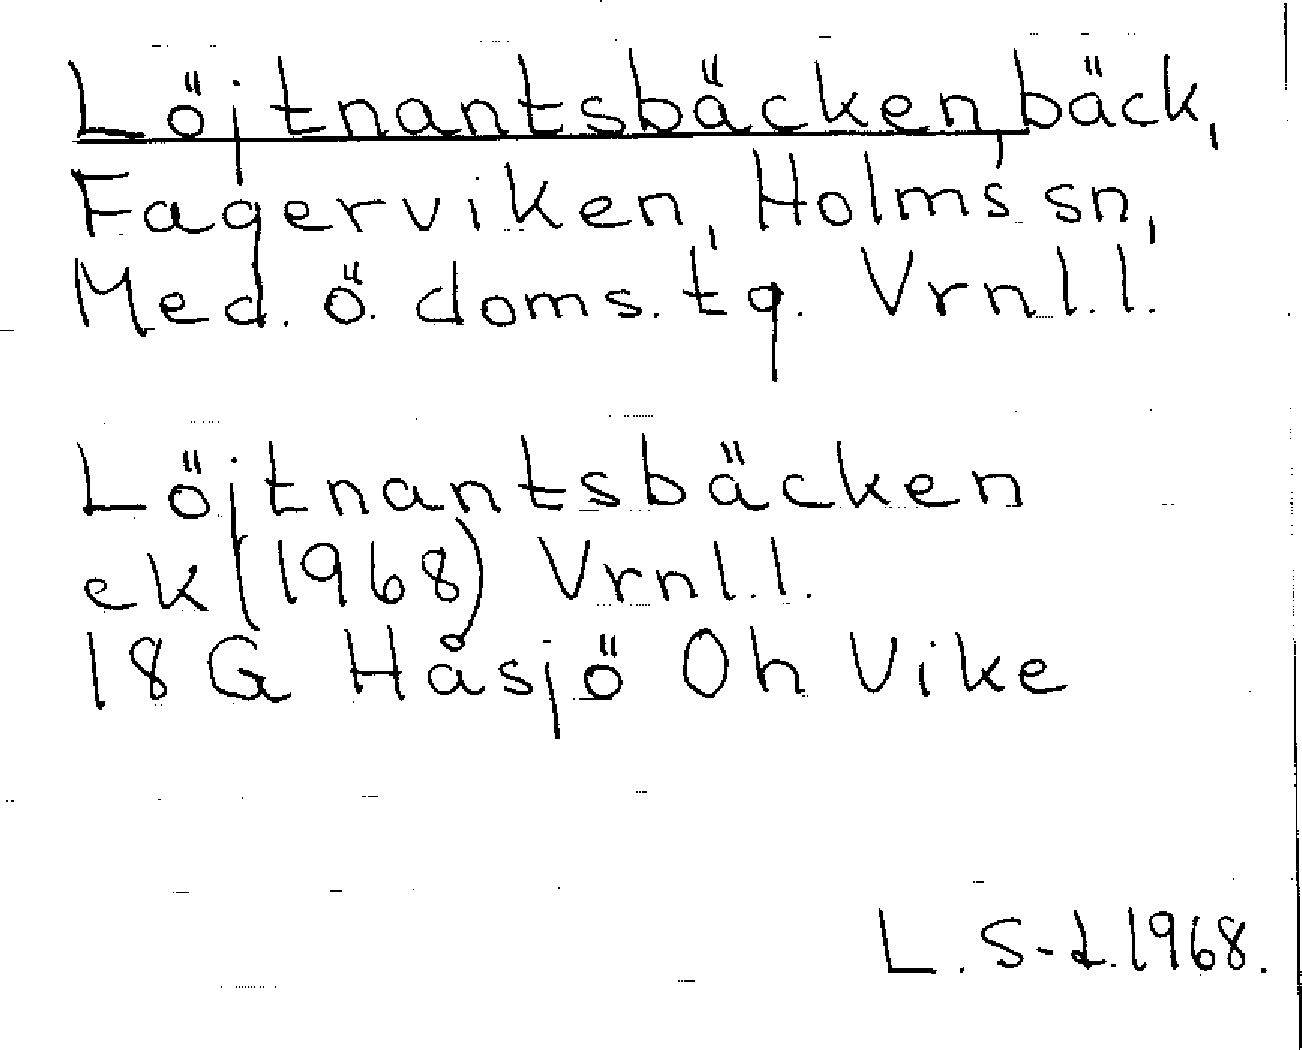 Löjtnantsbäcken, bäck,
Fagerviken, Holms sn,
Med. ö. doms. tg. Vrnl.l.
Löjtnantsbäcken
ek (1968) Vrnl.l.
18 G Håsjö Oh Vike
L. S-d. 1968.